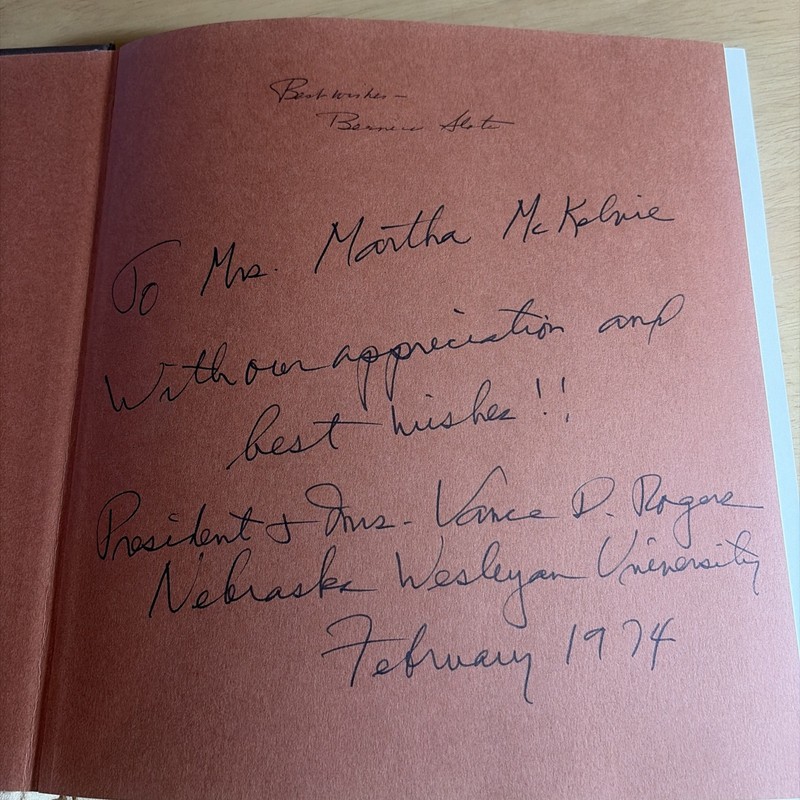 Best wishes —
Bernice Slote
To Mrs. Martha McKelvie
With our appreciation and
best wishes!!
President & Mrs. Vance D. Rogers
Nebraska Wesleyan University
February 1974